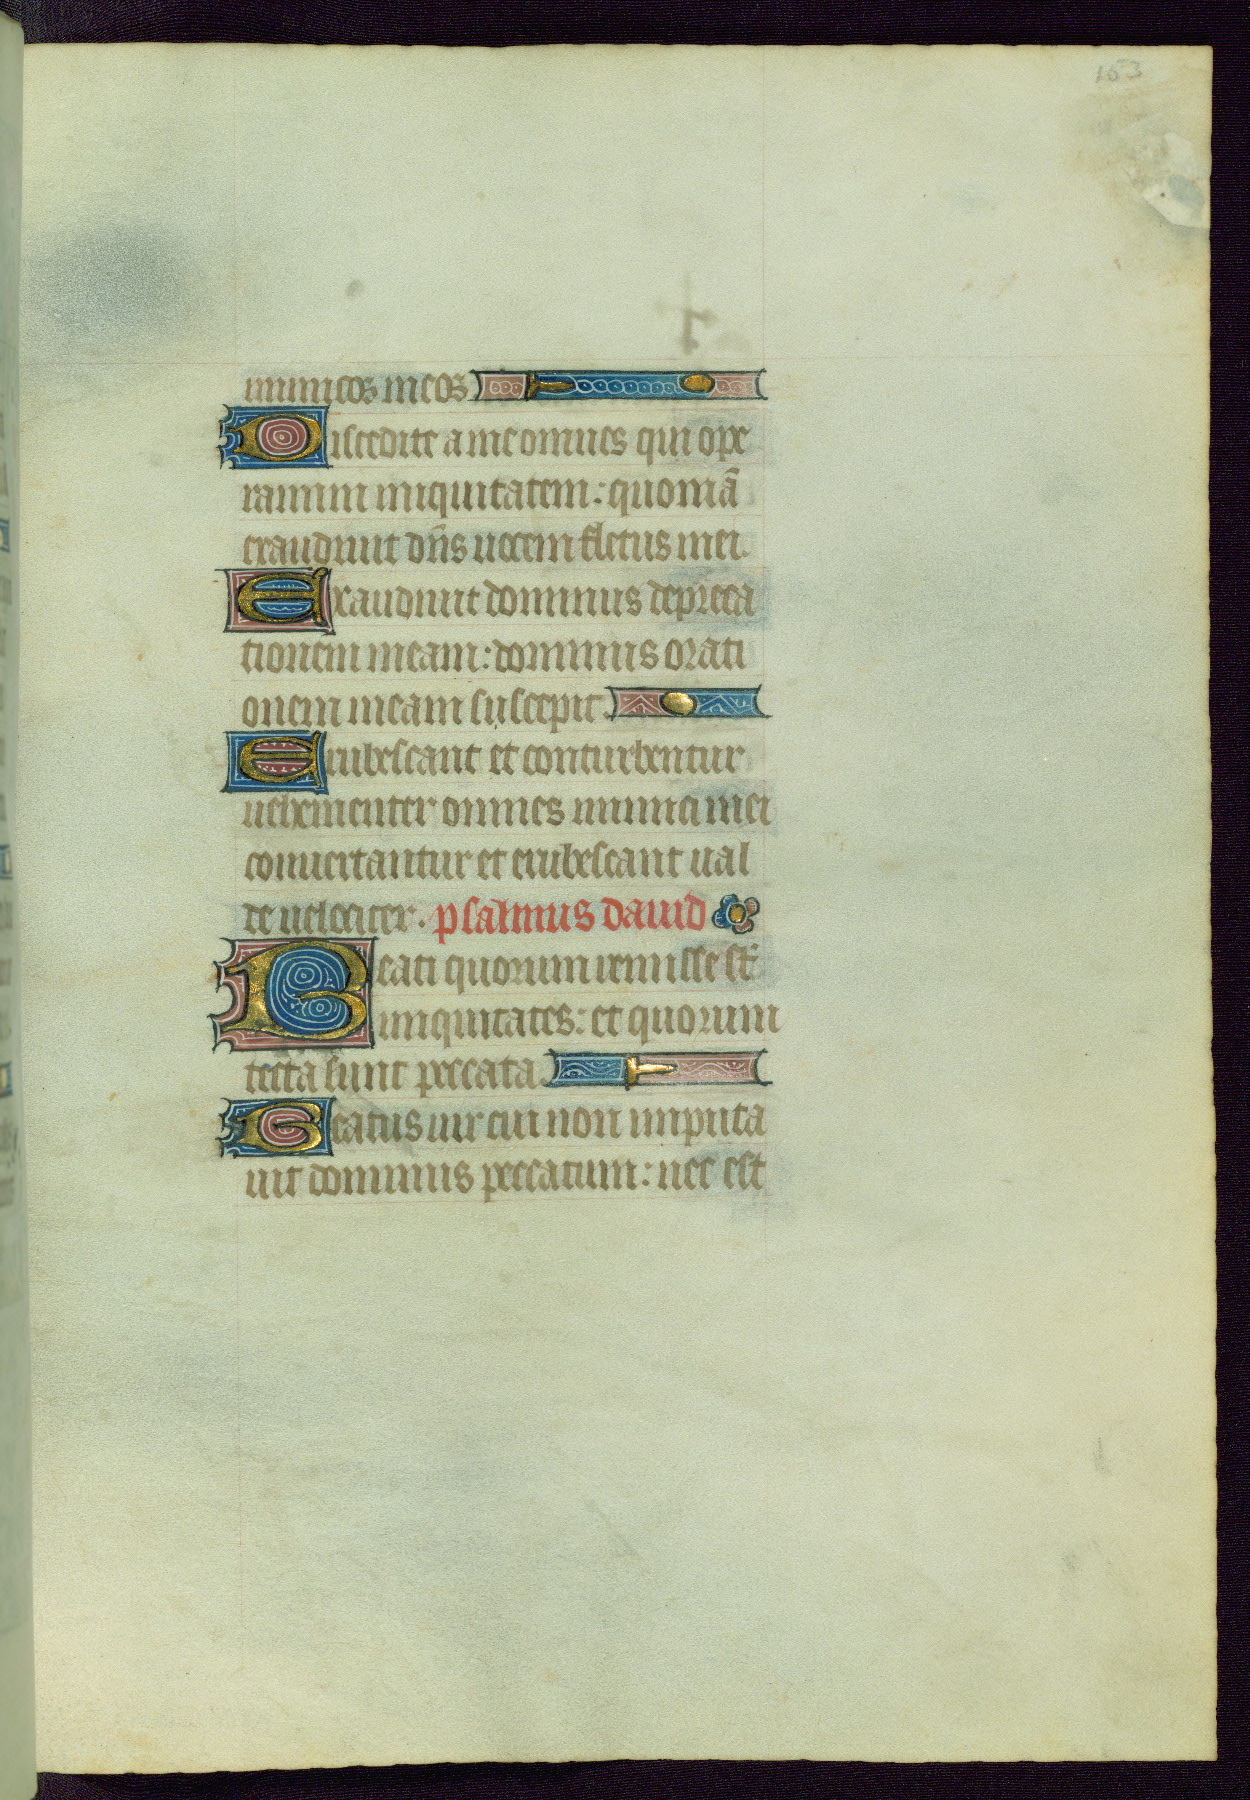 163
inimicos meos
Discedite a me omnes qui ope
ramini iniquitatem: quoniã
exaudiuit dñs uocem fletus mei.
Exaudiuit dominus depreca
tionem meam: dominus orati
onem meam suscepit.
Erubescant et conturbentur
uehementer omnes inimici mei
conuertantur et erubescant ual
de uelociter. psalmus dauid
Beati quorum remisse st̃
iniquitates: et quorum
tecta sunt peccata.
Beatus uir cui non imputa
uit dominus peccatum: nec est